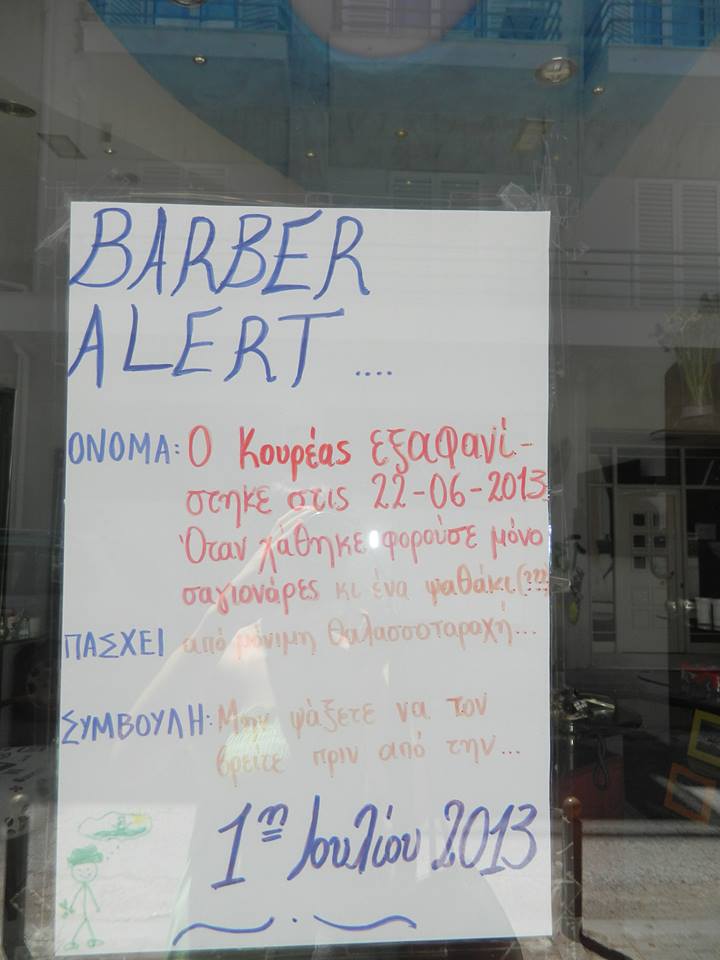 BARBER
ALERT ....
ΟΝΟΜΑ: Ο Κουρέας εξαφανί-
στηκε στις 22-06-2013
Όταν χάθηκε φορούσε μόνο
σαγιονάρες κι ένα ψαθάκι(???)
ΠΑΣΧΕΙ από μόνιμη θαλασσοταραχή...
ΣΥΜΒΟΥΛΗ: Μην ψάξετε να τον
βρείτε πριν από την...
1η Ιουλίου 2013